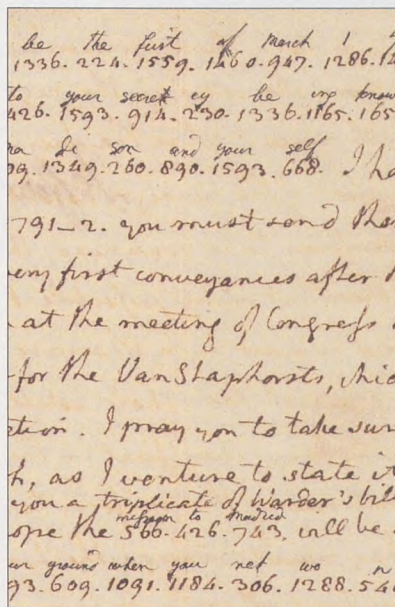 be the first of March 1
1336. 224. 1559. 1460. 947. 1286. 12
to your secret cy be ing know
426. 1593. 914. 230. 1336. 1165. 165
ma di son and your self
09. 1349. 260. 890. 1593. 668. I ha
791-2. you must send tha
very first conveyances after
at the meeting of Congress
for the Van Staphorsts,
ction. I pray you to take sur
h, as I venture to state it
you a triplicate of Warder's bill
to madrid
ope the 560. 426. 743. will be
ur ground when you net wo n
93. 609. 1091. 1184. 306. 1288. 540